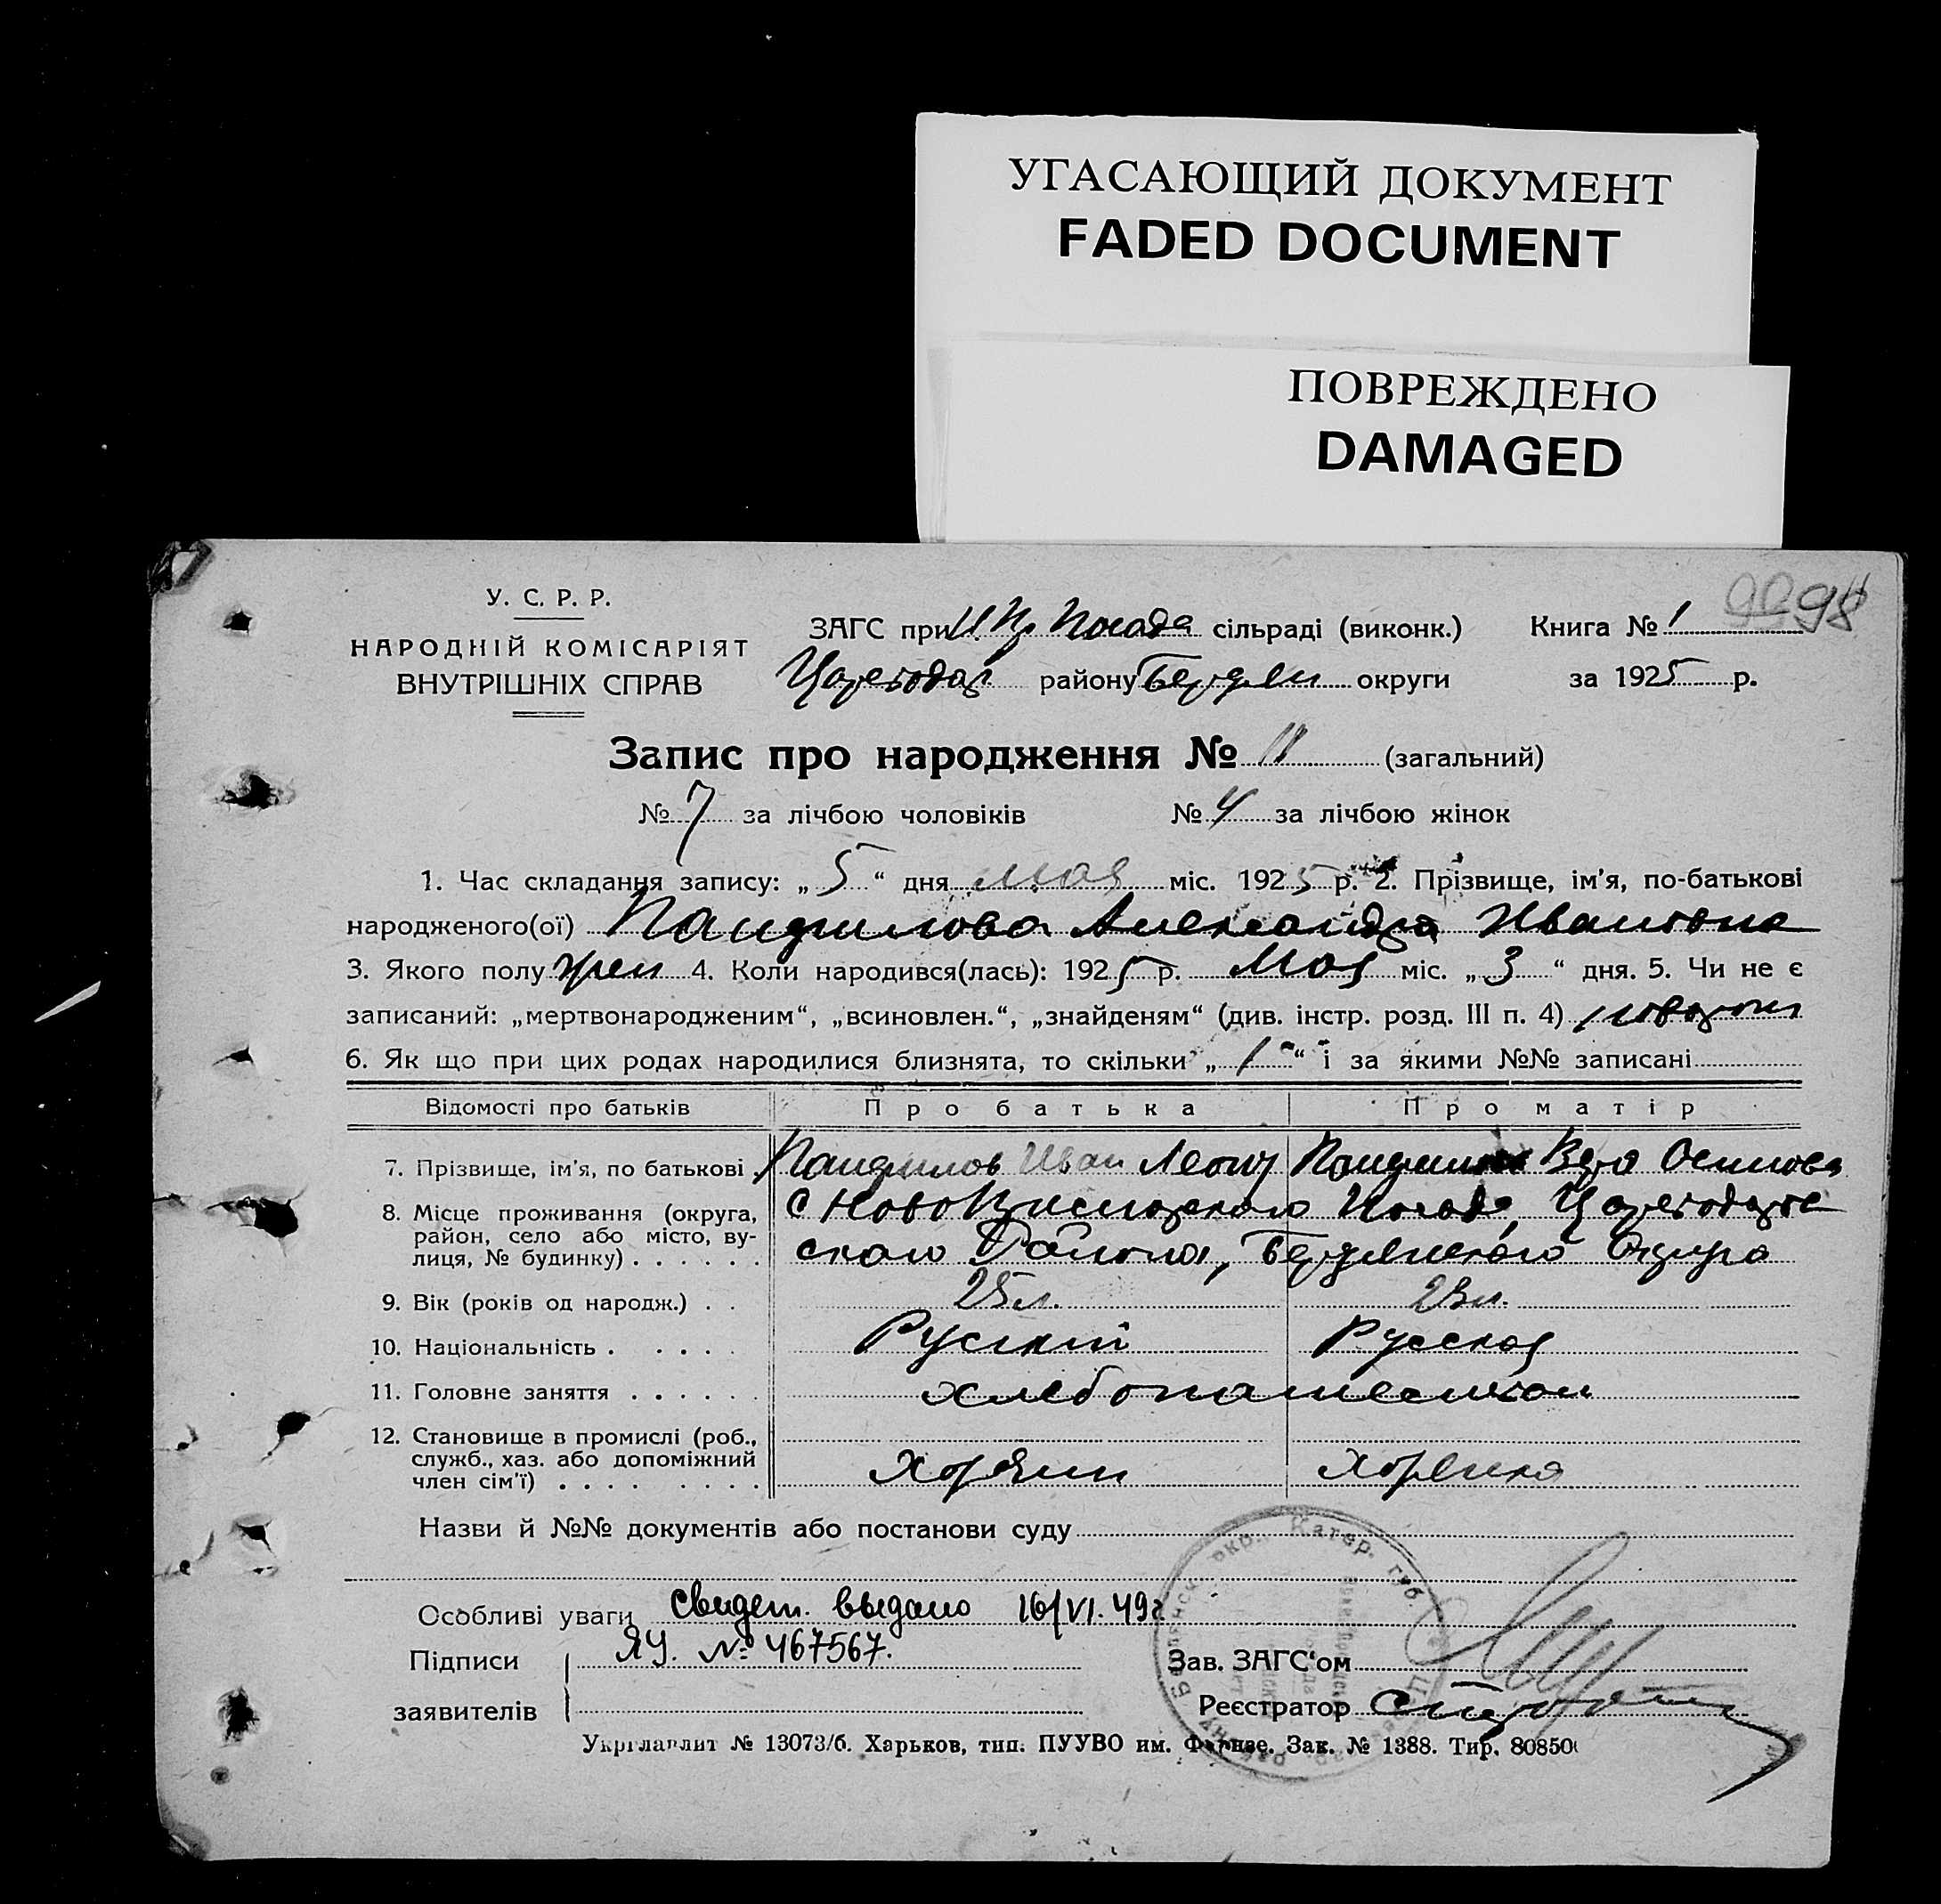 УГАСАЮЩИЙ ДОКУМЕНТ
FADED DOCUMENT
ПОВРЕЖДЕНО
DAMAGED
98
У. С. Р. Р.
НАРОДНІЙ КОМІСАРІЯТ
ВНУТРІШНІХ СПРАВ
ЗАГС при Посада сільраді (виконк.) Книга № 1
району округи за 1925 р.
Запис про народження № 11 (загальний)
№ 7 за лічбою чоловіків № 4 за лічбою жінок
1. Час складання запису: „ 5 “ дня мая міс. 1925 р. 2. Прізвище, ім'я, по-батькові
народженого(ої) Панфилова Александра Ивановна
3. Якого полу жен 4. Коли народився(лась): 1925 р. Мая міс. „ 3 “ дня. 5. Чи не є
записаний: „мертвонародженим“, „всиновлен.“, „знайденям“ (див. інстр. розд. III п. 4)
6. Як що при цих родах народилися близнята, то скільки „ 1 “ і за якими №№ записані
Відомості про батьків Про батька Про матір
7. Прізвище, ім'я, по батькові Панфилов Иван Осипова
8. Місце проживання (округа, район, село або місто, вулиця, № будинку) с Посада,
Района, Бердянского Округа
9. Вік (років од народж.) 25 л. 23 л.
10. Національність Руский Русская
11. Головне заняття хлебопашество
12. Становище в промислі (роб., служб., хаз. або допоміжний член сім'ї) Хозяин Хозяика
Назви й №№ документів або постанови суду
Особливі уваги Свидет. выдано 16/VI.49г
ЯУ. № 467567.
Підписи
заявителів
Зав. ЗАГС‘ом
Реєстратор
Укрглавлит № 13073/б. Харьков, тип. ПУУВО им. Фрунзе. Зак. № 1388. Тир. 80850